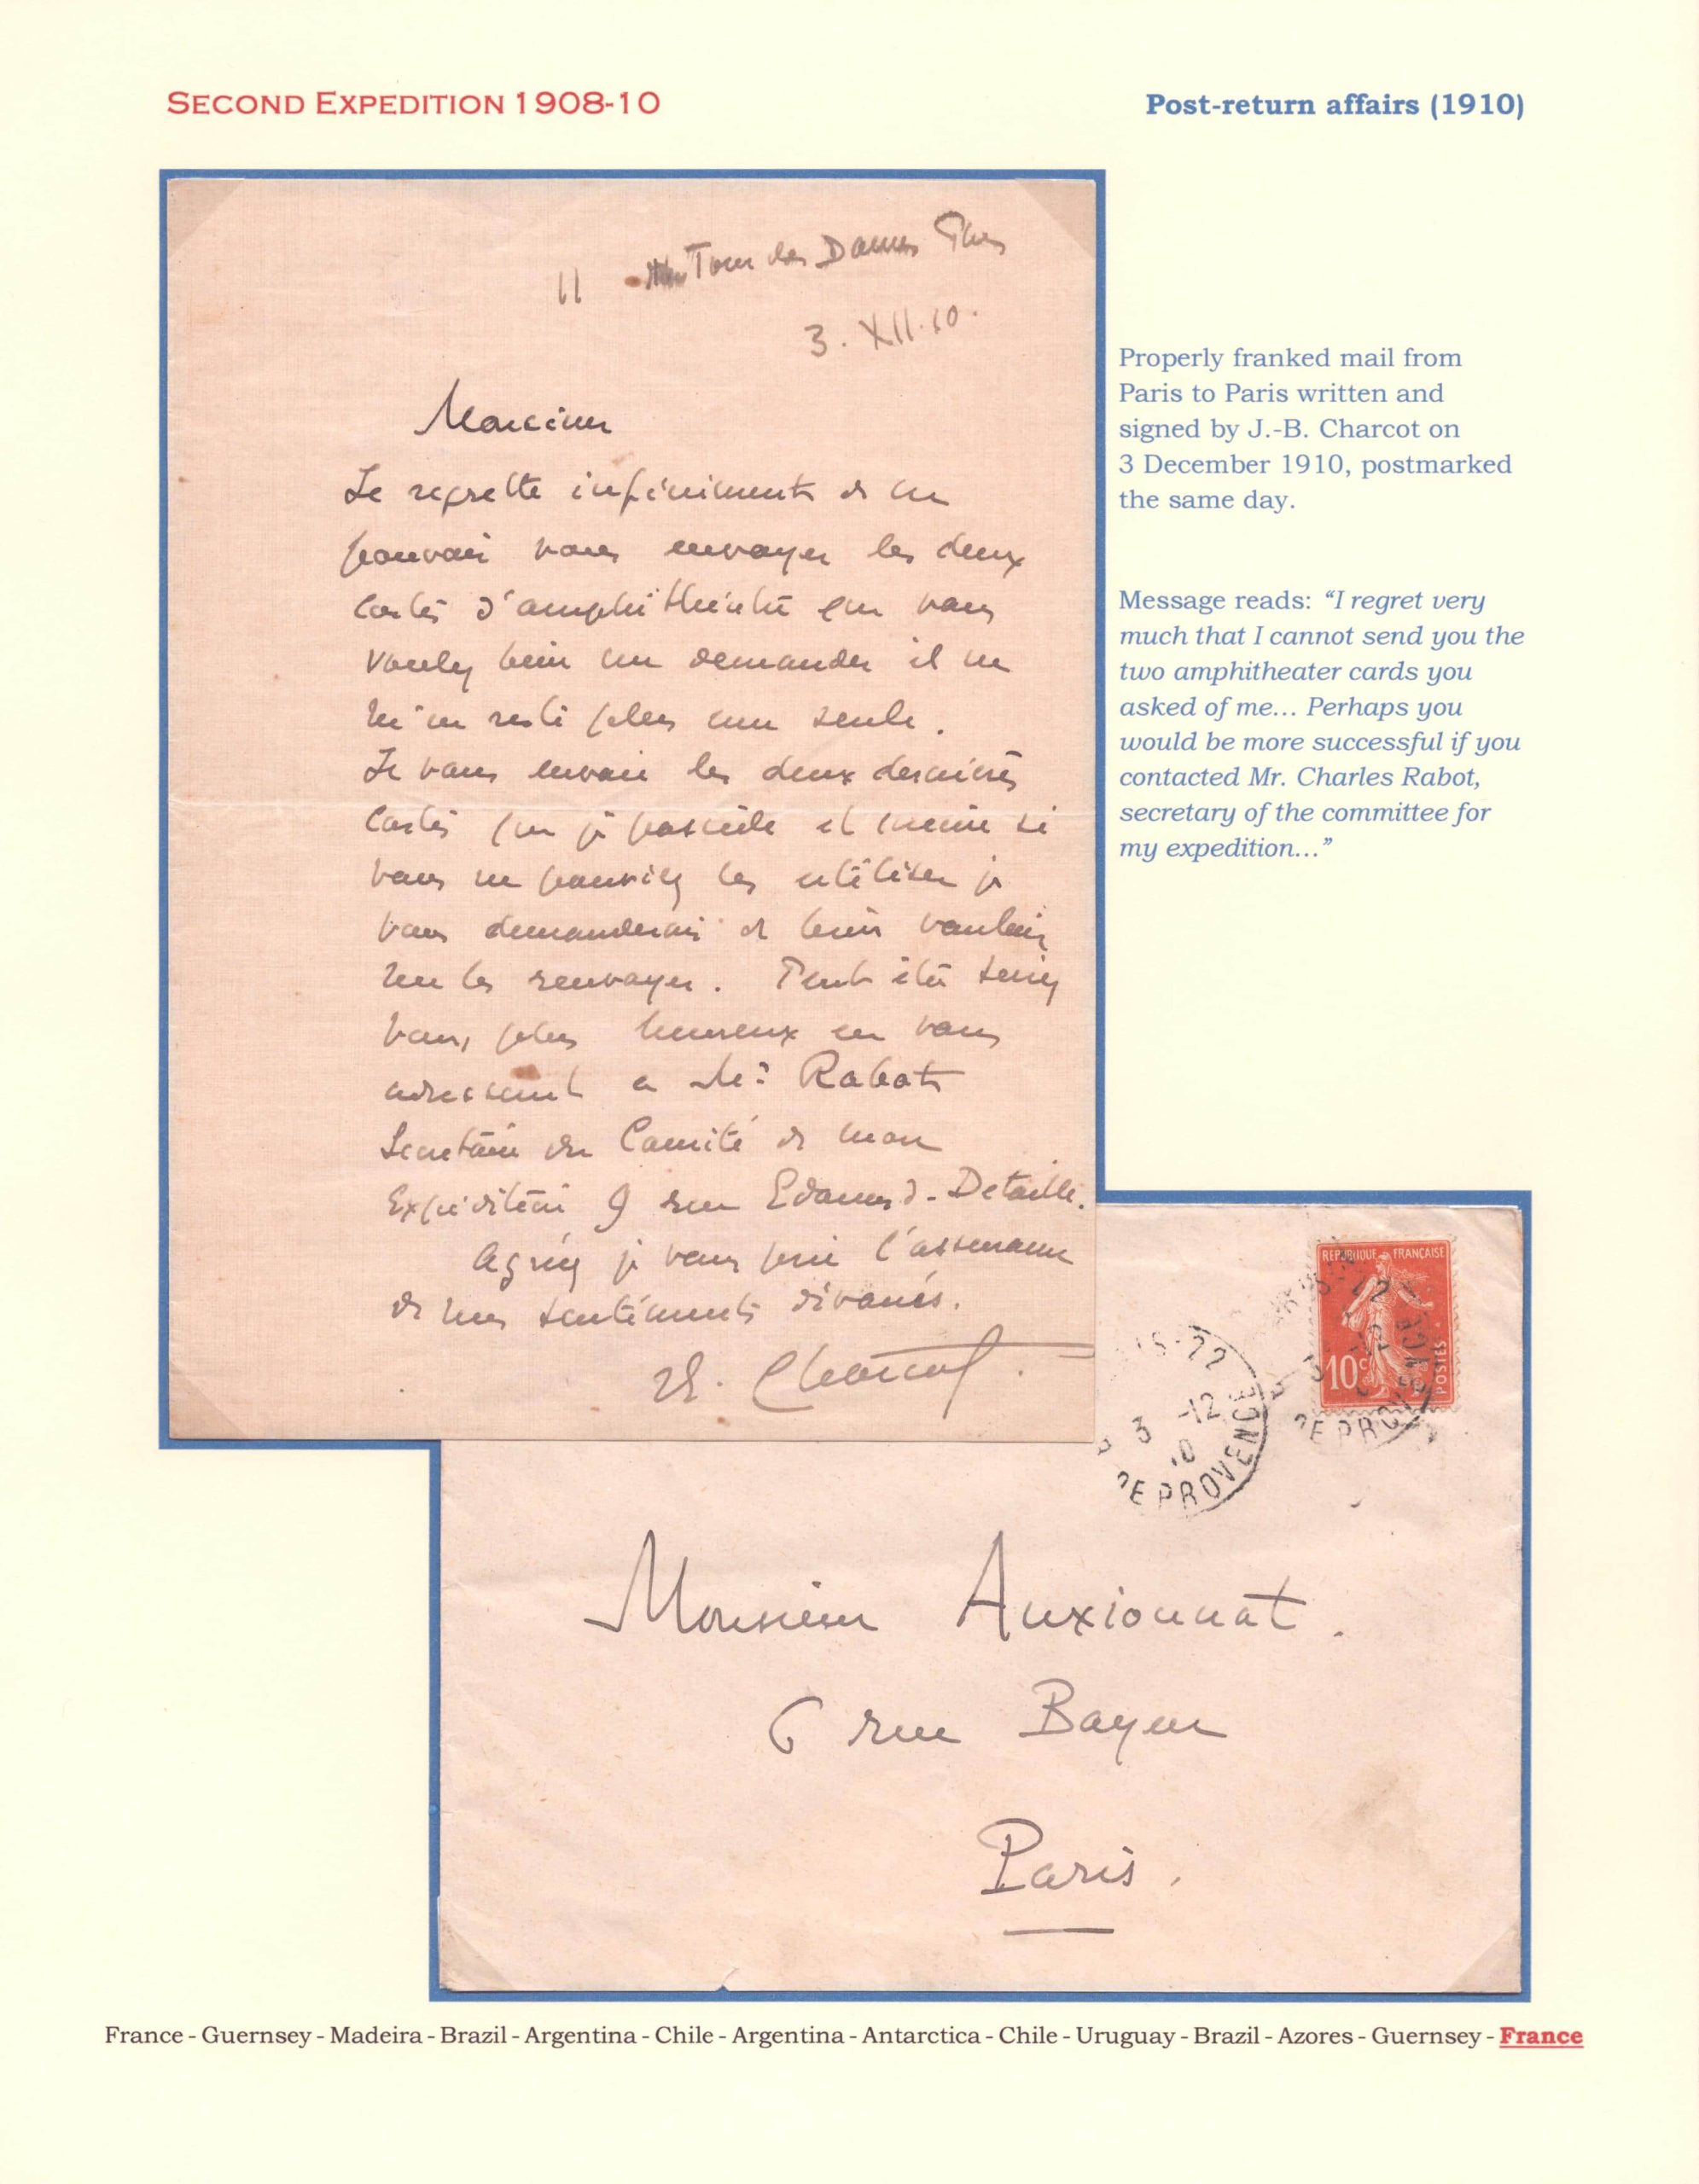 SECOND EXPEDITION 1908-10
Post-return affairs (1910)
11 Tour des Dames
3. XII. 10.
Monsieur
Je regrette infiniment de ne
pouvoir vous envoyer les deux
cartes d'amphithéâtre que vous
voulez bien me demander il ne
m'en reste plus une seule.
Je vous envoie les deux dernières
cartes que je possède et même si
vous ne pouviez les utiliser je
vous demanderai de bien vouloir
me les renvoyer. Peut être seriez
vous plus heureux en vous
adressant a Mr Rabot
Secrétaire du Comité de mon
Expédition 9 rue Edouard-Detaille.
Agréez je vous prie l'assurance
de mes sentiments dévoués.
Charcot
Properly franked mail from
Paris to Paris written and
signed by J.-B. Charcot on
3 December 1910, postmarked
the same day.
Message reads: “I regret very
much that I cannot send you the
two amphitheater cards you
asked of me... Perhaps you
would be more successful if you
contacted Mr. Charles Rabot,
secretary of the committee for
my expedition...”
REPUBLIQUE FRANÇAISE
10c POSTES
3 -12
10
DE PROVENCE
Monsieur Auxionnat.
6 rue Bayen
Paris.
France - Guernsey - Madeira - Brazil - Argentina - Chile - Argentina - Antarctica - Chile - Uruguay - Brazil - Azores - Guernsey - France